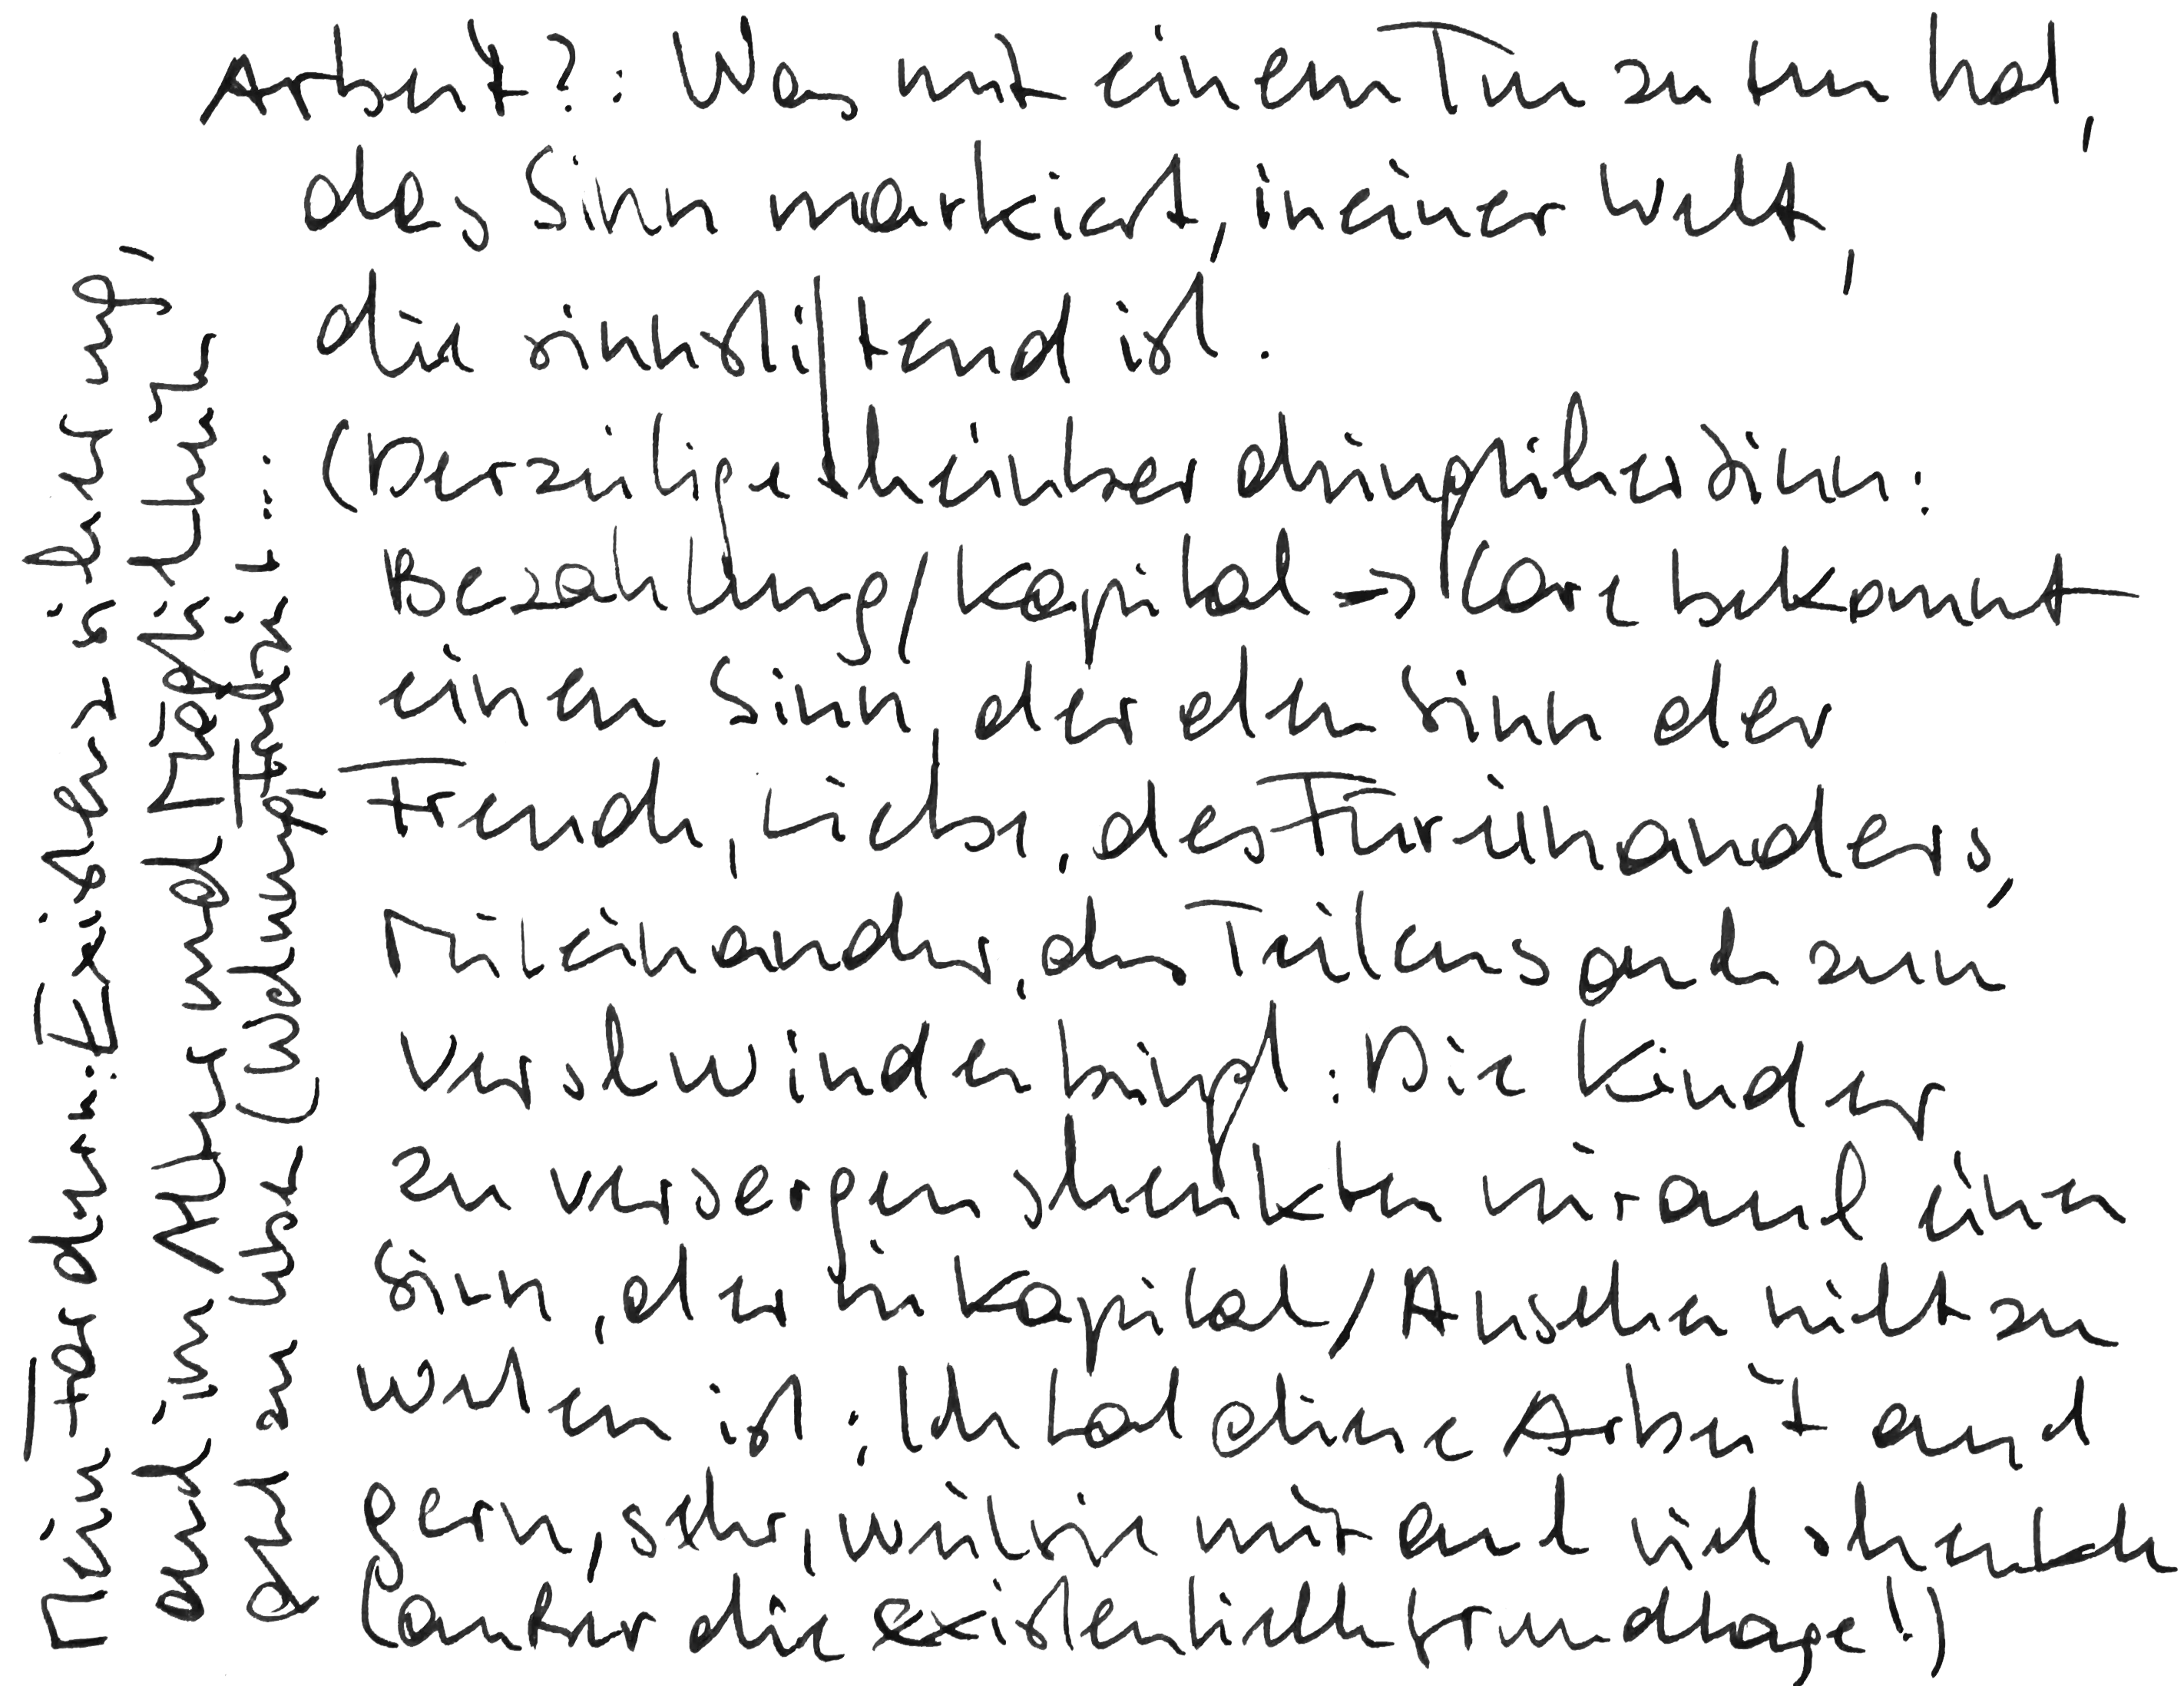 Arbeit?: Was mit einem Tun zu tun hat,
das Sinn markiert, in einer Welt,
die sinnstiftend ist.
(Derzeitiger scheinbar dringlicher Sinn:
Bezahlung/Kapital => Care bekommt
einen Sinn, der den Sinn der
Freude, Liebe, des Füreinanders,
Miteinander, des Teilens auch zum
Verschwinden bringt: Die Kinder
zu versorgen schenkte mir auch einen
Sinn, der in Kapital/Ansehen nicht zu
werten ist; Ich hab diese Arbeit auch
gern, sehr, weil sie mir auch viel schenkte
(außer die existentielle Grundlage!)
Mein Fordern: Existenzsicherung,
auch im Alter und Möglichkeiten
der (Wendung